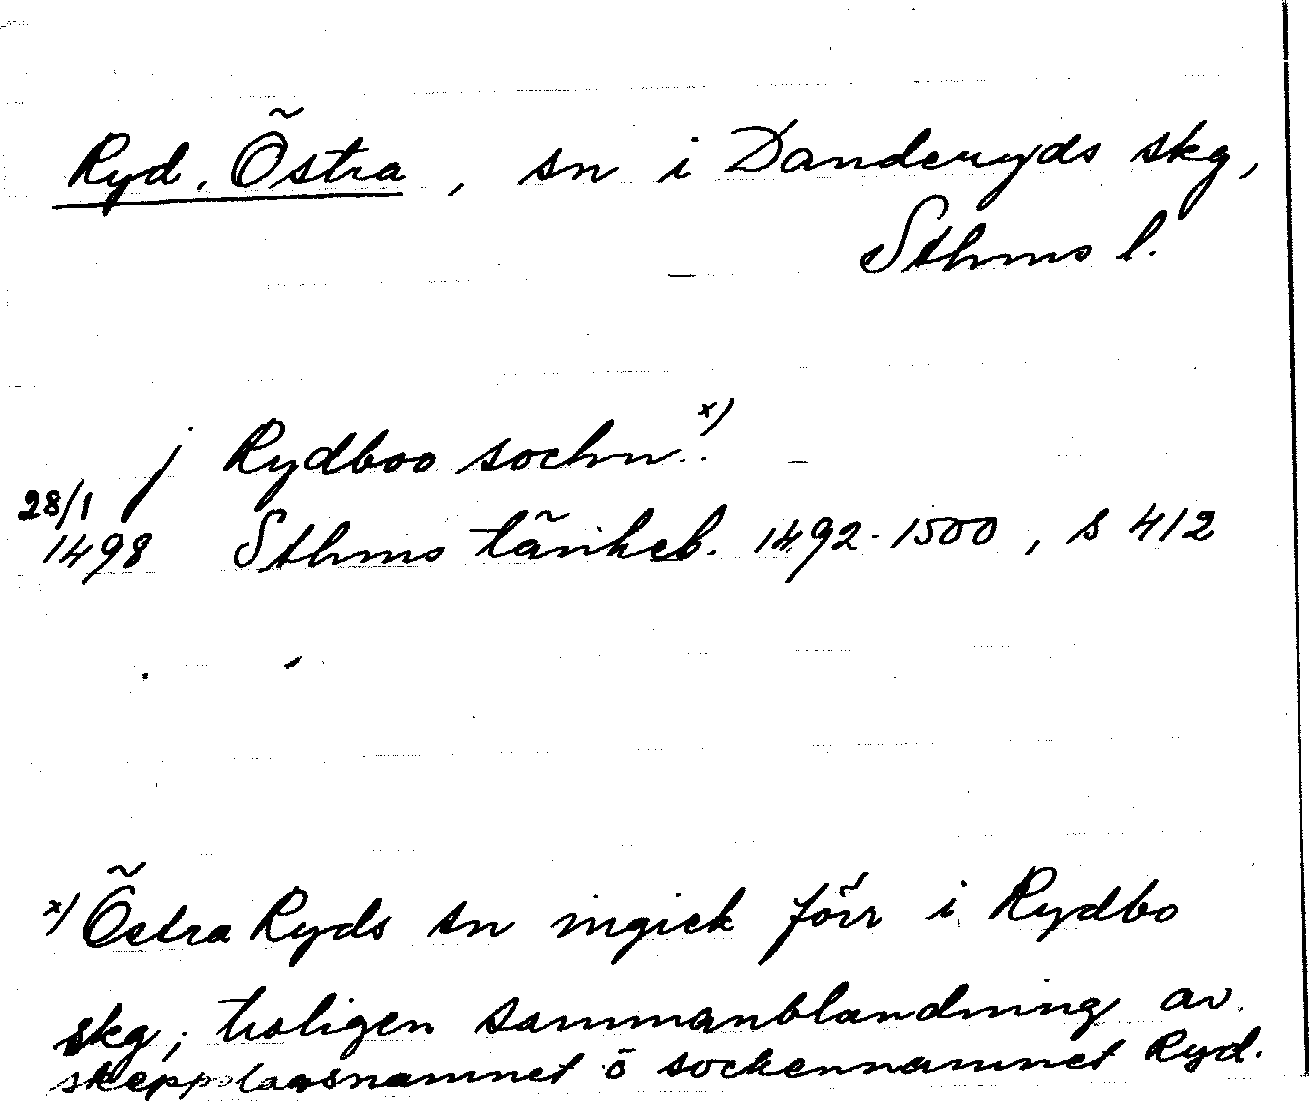 Ryd, Östra, sn i Danderyds skg,
Sthms l.
j Rydboo sochn. x)
28/1
1498 Sthms tänkeb. 1492-1500, s 412
x) Östra Ryds sn ingick förr i Rydbo
skg; troligen sammanblandning av
skeppslagsnamnet o sockennamnet Ryd.